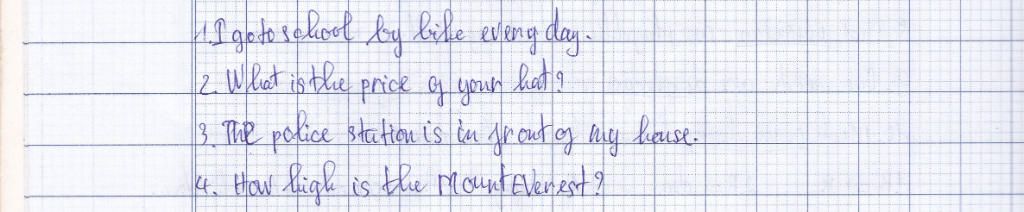 1. I go to school by bike every day.
2. What is the price of your hat?
3. The police station is in front of my house.
4. How high is the Mount Everest?